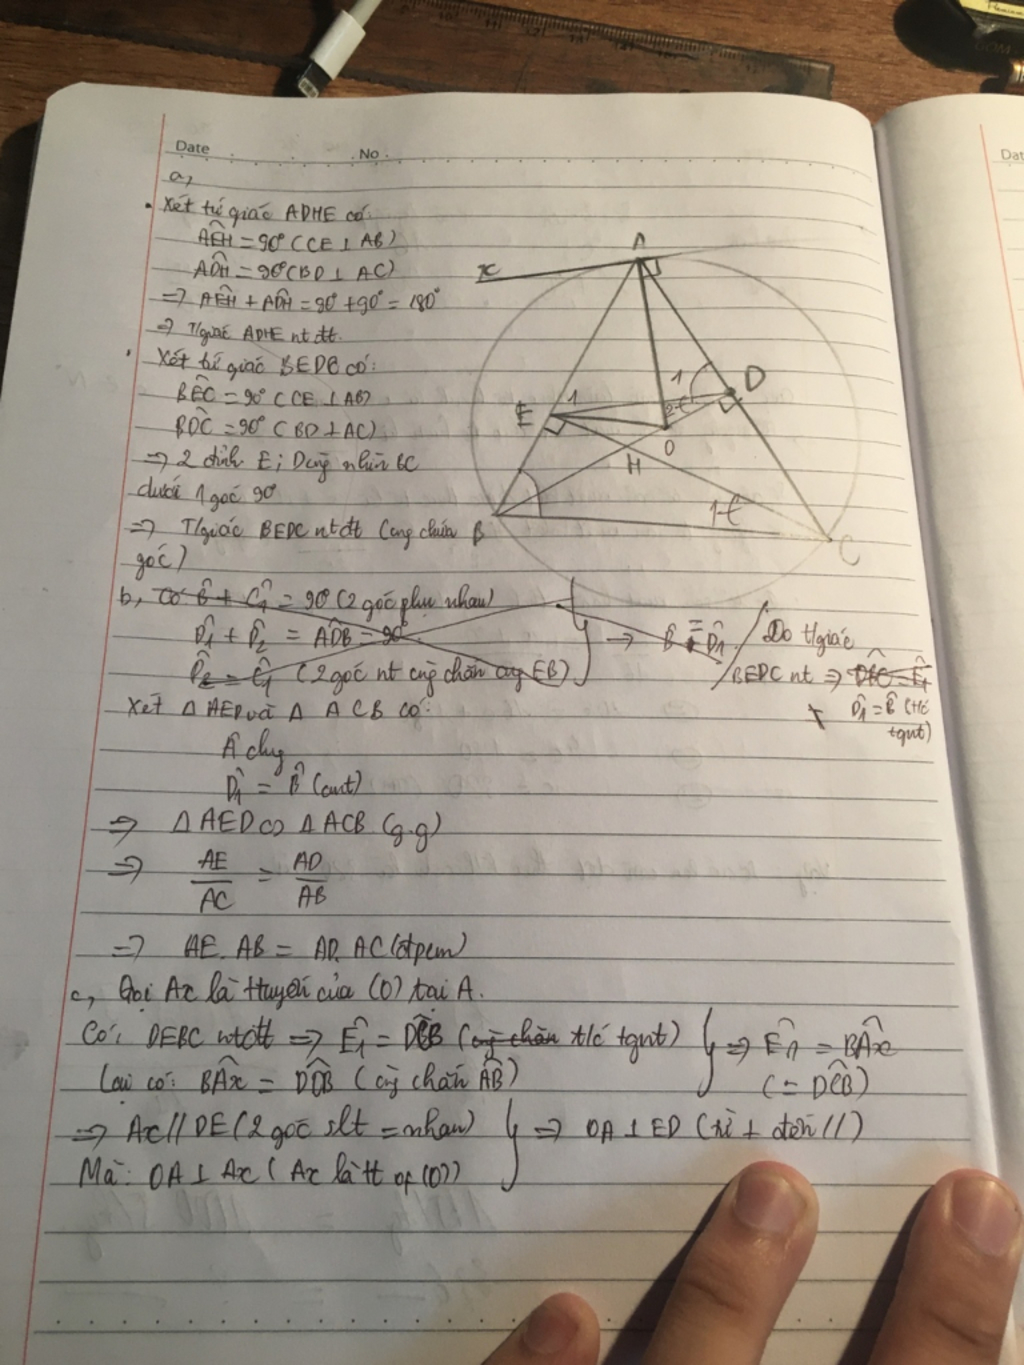 Date No.
a,
• Xét tứ giác ADHE có:
AÊH = 90° (CE ⊥ AB)
AD̂H = 90° (BD ⊥ AC)
⇒ AÊH + AD̂H = 90° + 90° = 180°
⇒ T/giác ADHE nt đt.
• Xét tứ giác BEDC có:
BÊC = 90° (CE ⊥ AB)
BD̂C = 90° (BD ⊥ AC)
⇒ 2 đỉnh E; D cùng nhìn BC
dưới 1 góc 90°
⇒ T/giác BEDC nt đt (cùng chứa
góc)
x A D E 1 1 2 O H B 1 C
b, Có B̂ + Ĉ1 = 90° (2 góc phụ nhau)
D̂1 + D̂2 = AD̂B = 90°
D̂2 = Ĉ1 (2 góc nt cùng chắn cung EB)
⇒ B̂ = D̂1
Do t/giác
BEDC nt ⇒
D̂1 = B̂ (t/c
tgnt)
Xét Δ AED và Δ ACB có:
Â chung
D̂1 = B̂ (cmt)
⇒ Δ AED ∽ Δ ACB (g.g)
⇒ AE/AC = AD/AB
⇒ AE. AB = AD. AC (đpcm)
c, Gọi Ax là ttuyến của (O) tại A.
Có: DEBC nt đt ⇒ Ê1 = DĈB (cùng chắn t/c tgnt)
Lại có: BÂx = DĈB (cùng chắn AB)
⇒ Ê1 = BÂx
(= DĈB)
⇒ Ax // DE (2 góc slt = nhau)
Mà: OA ⊥ Ax (Ax là tt of (O))
⇒ OA ⊥ ED (từ ⊥ đến //)